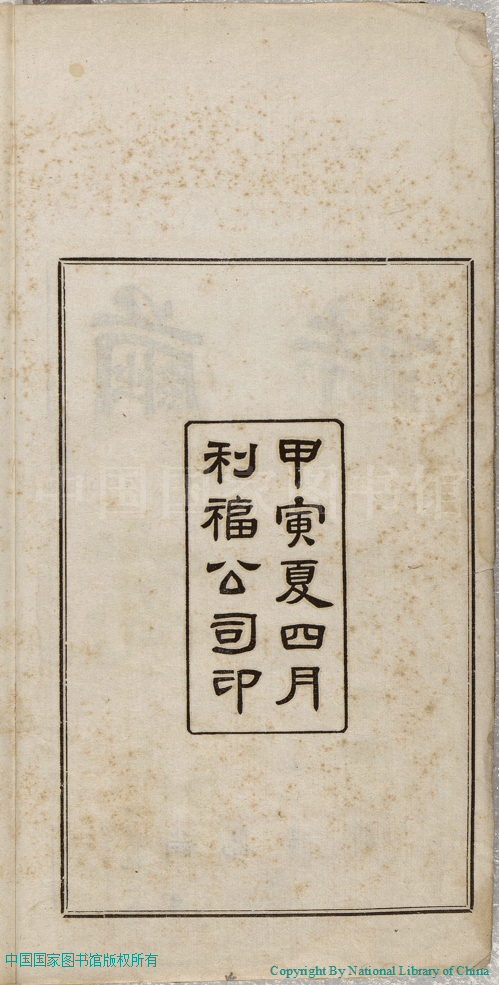 甲寅夏四月
利福公司印
中国国家图书馆
中国国家图书馆版权所有
Copyright By National Library of China